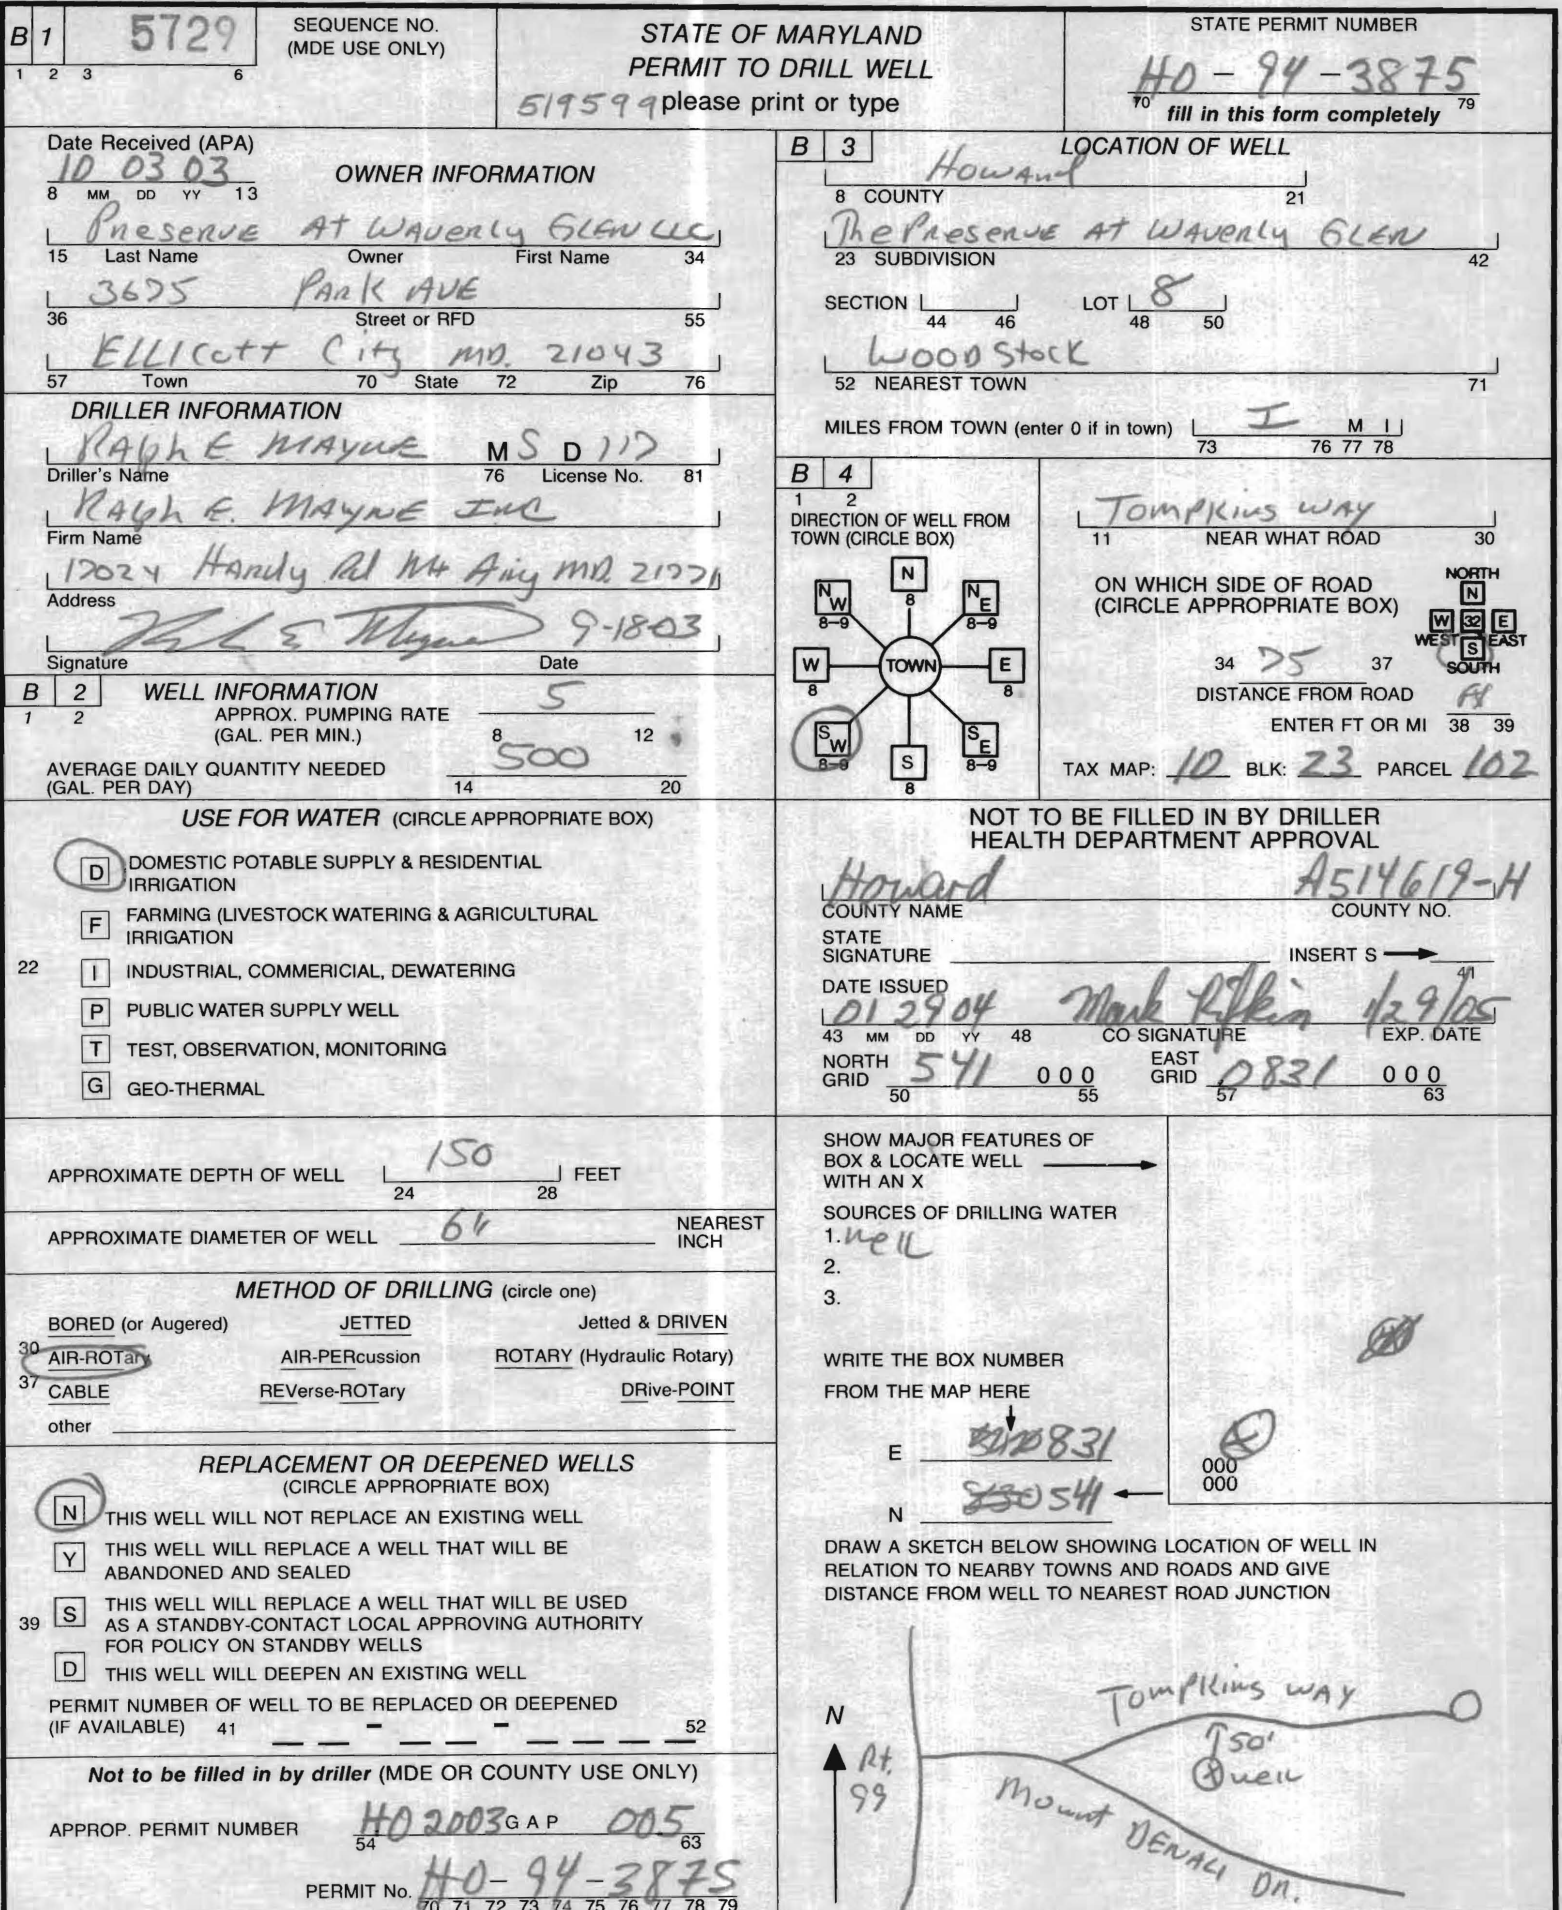 B 1 5729 SEQUENCE NO. (MDE USE ONLY)
1 2 3 6
STATE OF MARYLAND
PERMIT TO DRILL WELL
519599 please print or type
STATE PERMIT NUMBER
HO-94-3875
70 fill in this form completely 79
Date Received (APA)
10 03 03
8 MM DD YY 13
OWNER INFORMATION
Preserve At Waverly GLEN LLC
15 Last Name Owner First Name 34
PARK AVE
36 Street or RFD 55
ELLICott City MD. 21043
57 Town 70 State 72 Zip 76
DRILLER INFORMATION
RALph E MAYNE M S D 117
Driller's Name 76 License No. 81
RALph E. MAYNE INC
Firm Name
Handy Rd Mt Airy MD.
Address
9-18-03
Signature Date
B 2 WELL INFORMATION
1 2 APPROX. PUMPING RATE 5
(GAL. PER MIN.) 8 12
AVERAGE DAILY QUANTITY NEEDED 500
(GAL. PER DAY) 14 20
USE FOR WATER (CIRCLE APPROPRIATE BOX)
D DOMESTIC POTABLE SUPPLY & RESIDENTIAL
IRRIGATION
F FARMING (LIVESTOCK WATERING & AGRICULTURAL
IRRIGATION
22 I INDUSTRIAL, COMMERICIAL, DEWATERING
P PUBLIC WATER SUPPLY WELL
T TEST, OBSERVATION, MONITORING
G GEO-THERMAL
APPROXIMATE DEPTH OF WELL 150 FEET
24 28
APPROXIMATE DIAMETER OF WELL 6" NEAREST
INCH
METHOD OF DRILLING (circle one)
BORED (or Augered) JETTED Jetted & DRIVEN
30 AIR-ROTary AIR-PERcussion ROTARY (Hydraulic Rotary)
37 CABLE REVerse-ROTary DRive-POINT
other
REPLACEMENT OR DEEPENED WELLS
(CIRCLE APPROPRIATE BOX)
N THIS WELL WILL NOT REPLACE AN EXISTING WELL
Y THIS WELL WILL REPLACE A WELL THAT WILL BE
ABANDONED AND SEALED
39 S THIS WELL WILL REPLACE A WELL THAT WILL BE USED
AS A STANDBY-CONTACT LOCAL APPROVING AUTHORITY
FOR POLICY ON STANDBY WELLS
D THIS WELL WILL DEEPEN AN EXISTING WELL
PERMIT NUMBER OF WELL TO BE REPLACED OR DEEPENED
(IF AVAILABLE) 41 - - 52
Not to be filled in by driller (MDE OR COUNTY USE ONLY)
APPROP. PERMIT NUMBER HO 2003 G A P 005
54 63
PERMIT No. HO-94-3875
70 71 72 73 74 75 76 77 78 79
B 3 LOCATION OF WELL
Howard
8 COUNTY 21
The Preserve At Waverly GLEN
23 SUBDIVISION 42
SECTION LOT 8
44 46 48 50
WOODStock
52 NEAREST TOWN 71
MILES FROM TOWN (enter 0 if in town) I M I
73 76 77 78
B 4
1 2
DIRECTION OF WELL FROM
TOWN (CIRCLE BOX)
N 8
NW 8-9 NE 8-9
W 8 TOWN E 8
SW 8-9 SE 8-9
S 8
Tompkins WAY
11 NEAR WHAT ROAD 30
ON WHICH SIDE OF ROAD
(CIRCLE APPROPRIATE BOX)
NORTH
N
W 32 E
WEST EAST
S
SOUTH
34 75 37
DISTANCE FROM ROAD
ENTER FT OR MI ft 38 39
TAX MAP: 10 BLK: 23 PARCEL 102
NOT TO BE FILLED IN BY DRILLER
HEALTH DEPARTMENT APPROVAL
Howard A514619-H
COUNTY NAME COUNTY NO.
STATE
SIGNATURE INSERT S
41
DATE ISSUED
01 29 04 Mark Rifkin 1/29/05
43 MM DD YY 48 CO SIGNATURE EXP. DATE
NORTH GRID 541 000 EAST GRID 0831 000
50 55 57 63
SHOW MAJOR FEATURES OF
BOX & LOCATE WELL
WITH AN X
SOURCES OF DRILLING WATER
1. well
2.
3.
WRITE THE BOX NUMBER
FROM THE MAP HERE
E 831
N 541
000
000
DRAW A SKETCH BELOW SHOWING LOCATION OF WELL IN
RELATION TO NEARBY TOWNS AND ROADS AND GIVE
DISTANCE FROM WELL TO NEAREST ROAD JUNCTION
Tompkins WAY
N
50'
well
Rt.
99
Mount DENALI Dr.